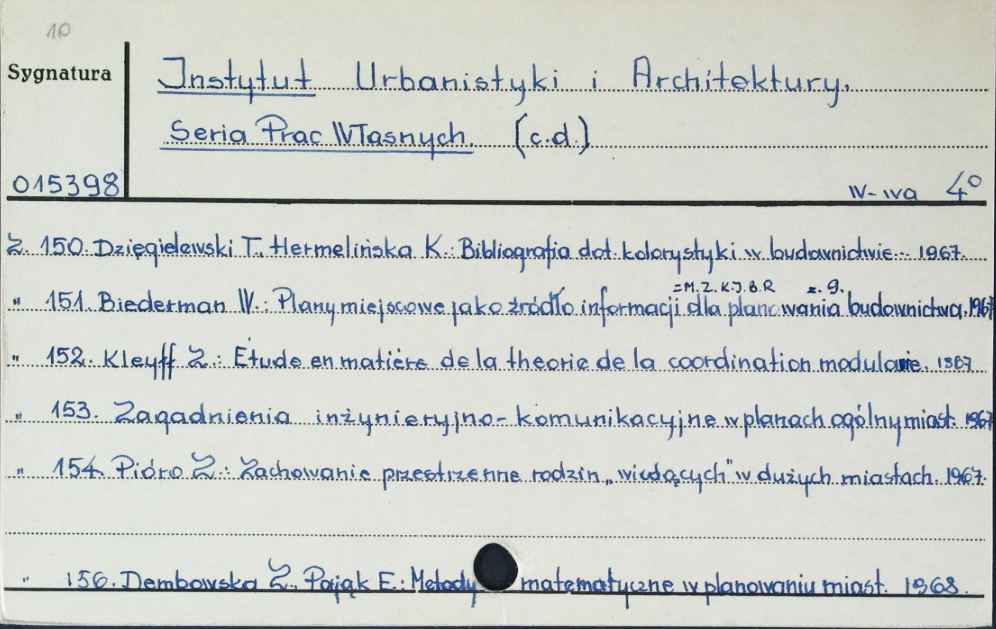 10
Sygnatura
Instytut Urbanistyki i Architektury.
Seria Prac Własnych. (c.d.)
015398
W-wa 4°
Z. 150. Dzięgielewski T., Hermelińska K.: Bibliografia dot. kolorystyki w budownictwie... 1967.
=M.Z.K.J.B.R z. 9.
" 151. Biederman W.: Plany miejscowe jako źródło informacji dla planowania budownictwa. 1967
" 152. Kleyff Z.: Etude en matière de la theorie de la coordination modulaire. 1967
" 153. Zagadnienia inżynieryjno-komunikacyjne w planach ogólny miast. 1967
" 154. Pióro Z.: Zachowanie przestrzenne rodzin "wiodących" w dużych miastach. 1967.
" 156. Dembowska Z., Pająk E.: Metody matematyczne w planowaniu miast. 1968.